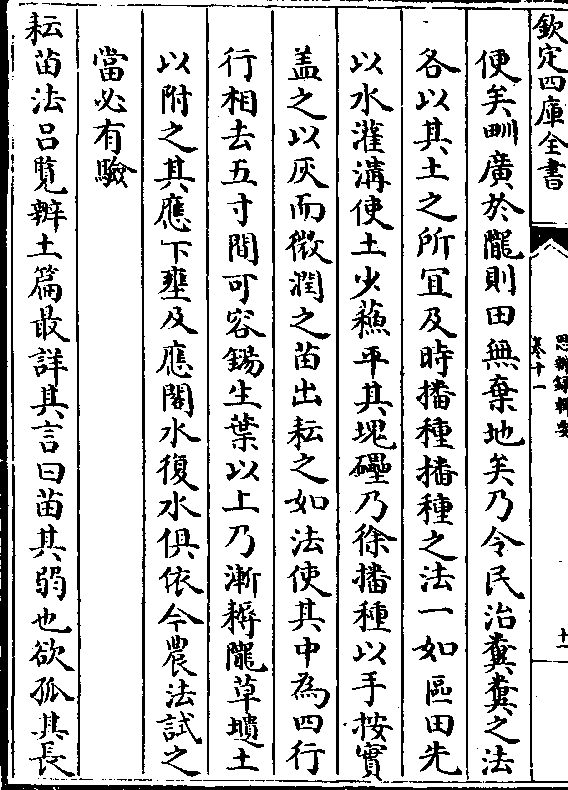 欽定四庫全書
思辨録輯要
卷十一
十一
便矣甽廣於隴則田無棄地矣乃令民治糞糞之法
各以其土之所宜及時播種播種之法一如區田先
以水灌溝使土少蘓平其塊礨乃徐播種以手按實
盖之以灰而微潤之苗出耘之如法使其中為四行
行相去五寸間可容鍚生葉以上乃漸耨隴草壝土
以附之其應下壅及應閣水復水俱依今農法試之
當必有驗
耘苗法吕覽辨土篇最詳其言曰苗其弱也欲孤其長